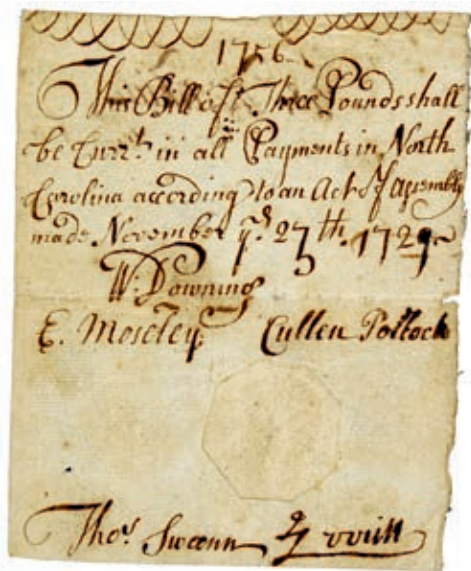 1756
This Bill of Three Pounds shall
be Curr.t in all Payments in North
Carolina according to an Act of Assembly
made November ye. 27th. 1729
W. Downing
E. Moseley Cullen Pollock
Tho.s Swann